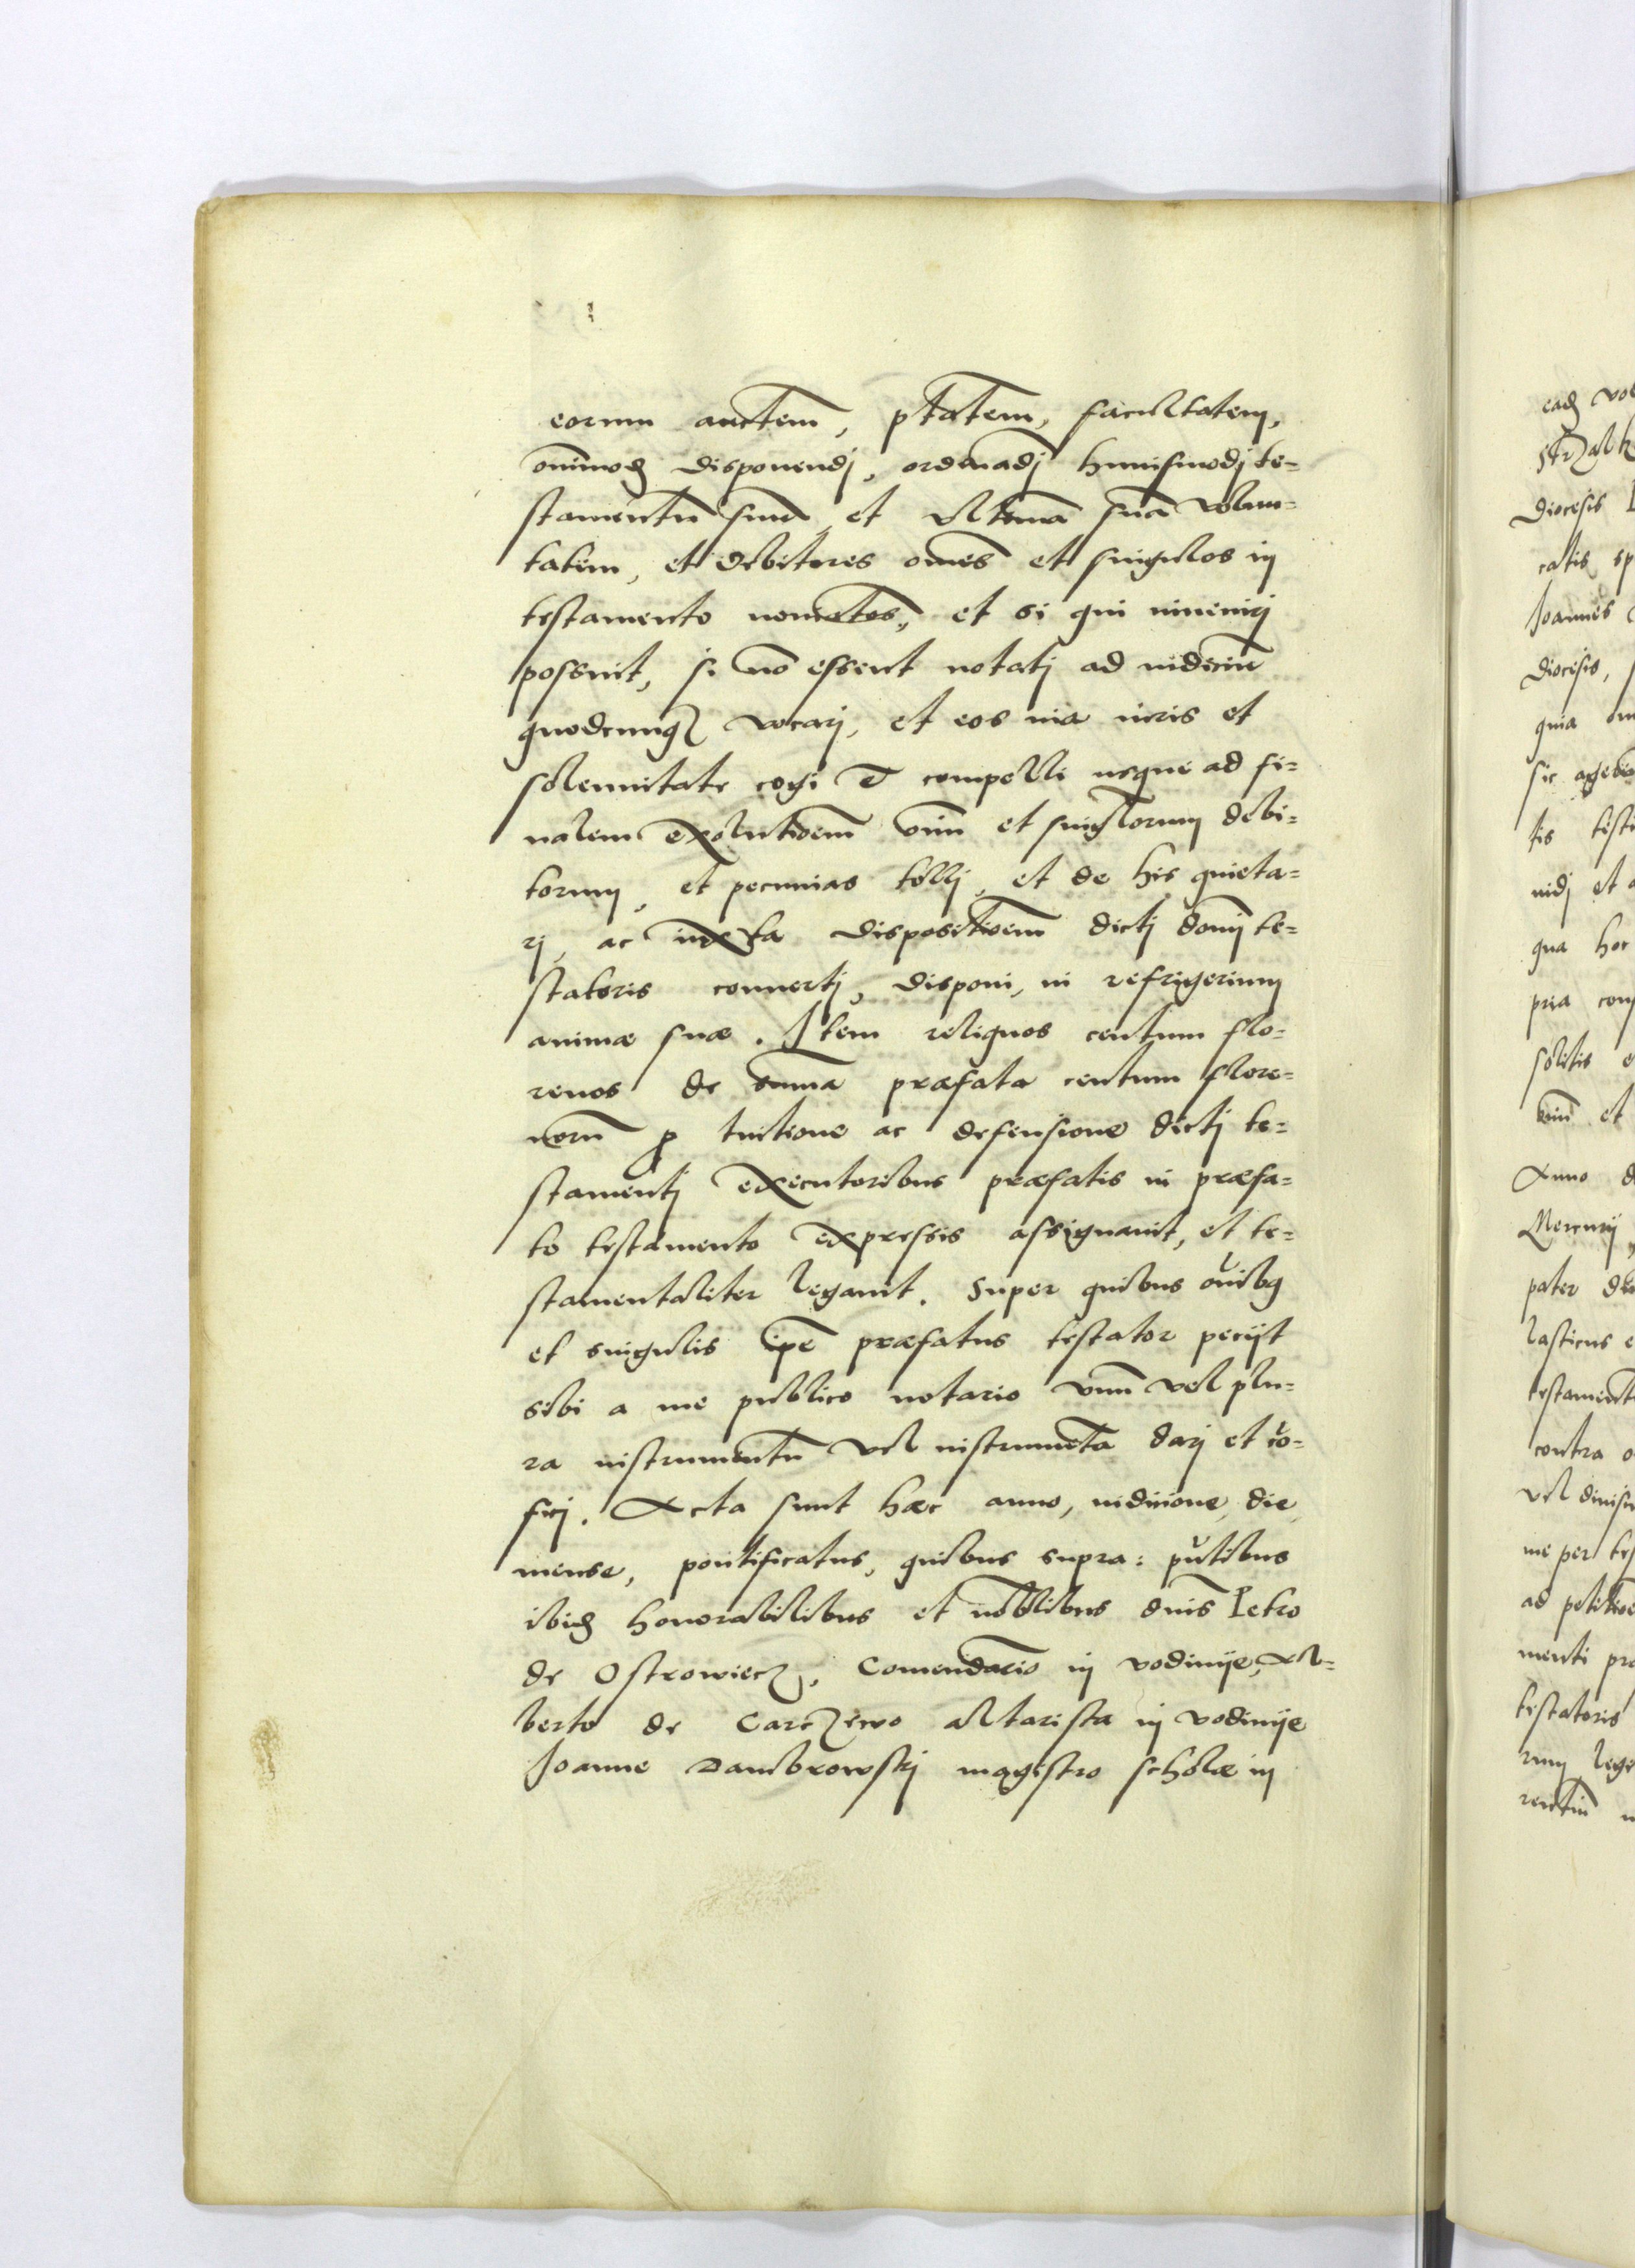 eorum auctem̃, ptatem̃, facultatem,
om̃imodã disponendj, ordinãdj huiusmodj te=
stamentũ suũ, et ultimã suã volun=
tatem, et debitores om̃es et singulos in
testamento noñiatos, et si qui inuenirj
possũt, si nõ essent notatj ad iudiciũ
quodcunqꝫ vocarj, et eos uia iuris et
solennitate cogi & compelli usque ad fi=
nalem exolutioem̃ om̃iũ et singlorum debi=
torum, et pecunias tollj, et de his quieta=
rj, ac iuxta dispositioem̃ dictj domĩj te=
statoris conuertj, disponi, in refrigerium
animæ suæ. Item reliquos centum flo=
renos de sum̃a præfata centum flore=
norũ ꝓ tuitione ac defensione dictj te=
stamentj executoribus præfatis in præfa=
to testamento expressis assignauit, et te=
stamentaliter legauit. Super quibus om̃ibꝫ
et singulis ip̃e præfatus testator pecijt
sibi a me publico notario vnũ vel plu=
ra instrumentũ vel instrumẽta darj et cõ=
ficj. Acta sunt hæc anno, indicione, die,
mense, pontificatus, quibus supra: pñtibus
ibidẽ honorabilibus et nobilibus dñis Petro
de Ostrowiecz, Comendario in vodinije, Al=
berto de Carczewo altarista in vodinije
Joanne Dambrowskj magistro scholæ in
eadẽ
Diocesis
catis
Joannes
Diocesis,
quia
sic
tis
uidj et
qua hoc
pria
solitis
et
Anno
Mercurij
pater
lasticus
contra
vel
me per
ad
menti
testatoris
rum